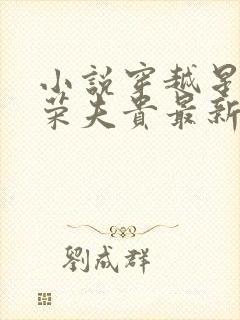 小說穿越星
荣夫貴最新
劉成群